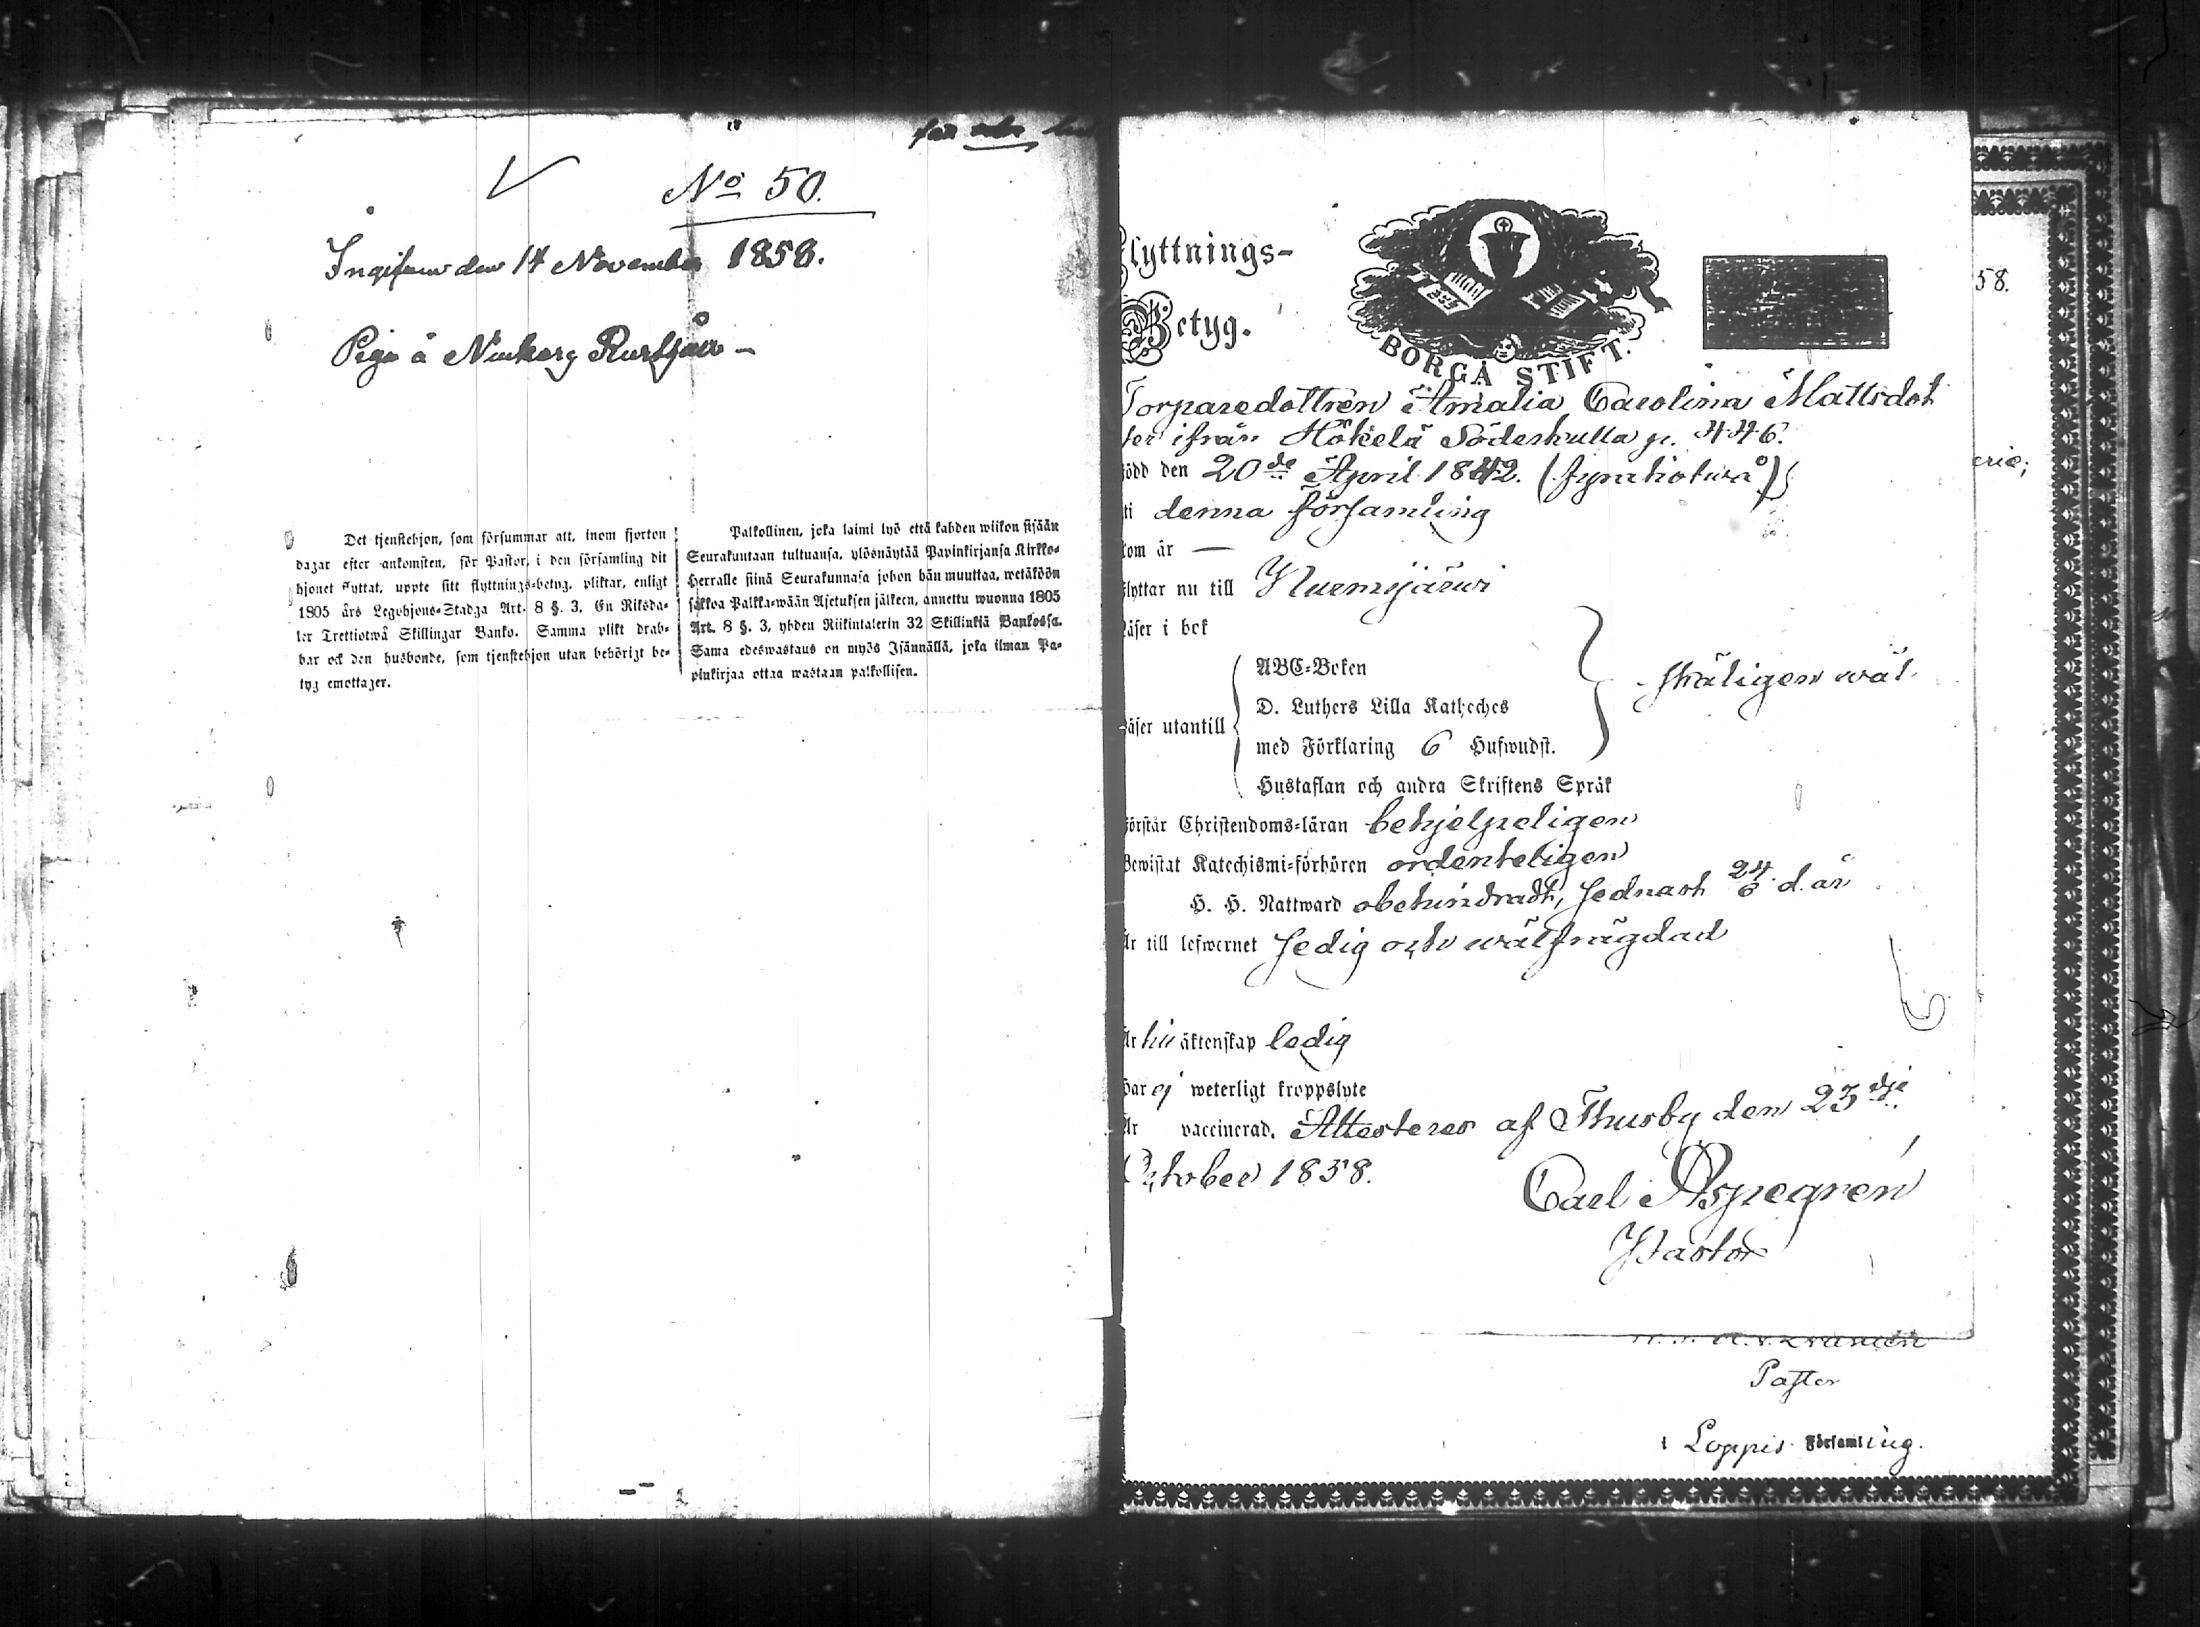 No 50.
Ingifven den 14 November 1858.
Piga å Nukary Rusthåll
Det tjenstehjon, som försummar att, inom fjorton
dagar efter ankomsten, för Pastor, i den församling dit
hjonet flyttat, uppte sitt flyttnings-betyg, pliktar, enligt
1805 års Legohjons-Stadga Art. 8 §. 3, En Riksda-
ler Trettiotwå Skillingar Banko. Samma plikt drab-
bar ock den husbonde, som tjenstehjon utan behörigt be-
tyg emottager.
Palkollinen, joka laimi lyö että kahden wiikon sisään
Seurakuntaan tultuansa, ylösnäytää Papinkirjansa Kirkko-
Herralle siinä Seurakunnasa johon hän muuttaa, wetäköön
sakkoa Palkka-wään Asetuksen jälkeen, annettu wuonna 1805
Art. 8 §. 3, yhden Riikintalerin 32 Skillinkiä Bankossa.
Sama edeswastaus on myös Isännällä, joka ilman Pa-
pinkirjaa ottaa wastaan palkollisen.
Flyttnings-
Betyg.
BORGÅ STIFT.
Torparedottren Amalia Carolina Mattsdot
ter ifrån Hökelä Söderkulla p. 446.
född den 20de April 1842. (fyratiotwå)
i denna församling
som är —
flyttar nu till Nurmijärwi
Läser i bok
ABC-Boken
D. Luthers Lilla Katheches
Läser utantill
med Förklaring 6 Hufwudst.
Hustaflan och andra Skriftens Språk
skäligen wäl
Förstår Christendoms-läran behjelpeligen
Bewistat Katechismi-förhören ordenteligen
H. H. Nattward obehindradt, sednast 24/6 d. år
Är till lefwernet sedig och wälfrägdad
Är till äktenskap ledig
Har ej weterligt kroppslyte
Är vaccinerad. Attesteras af Thusby den 23dje
October 1858.
Carl Aspegren
Pastor
58.
Pastor
i Loppis Församling.